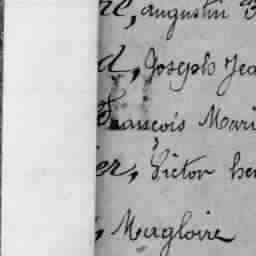 re, augustin
d, Joseph Jea
Francois Mari
er, Victor hen
, Magloire